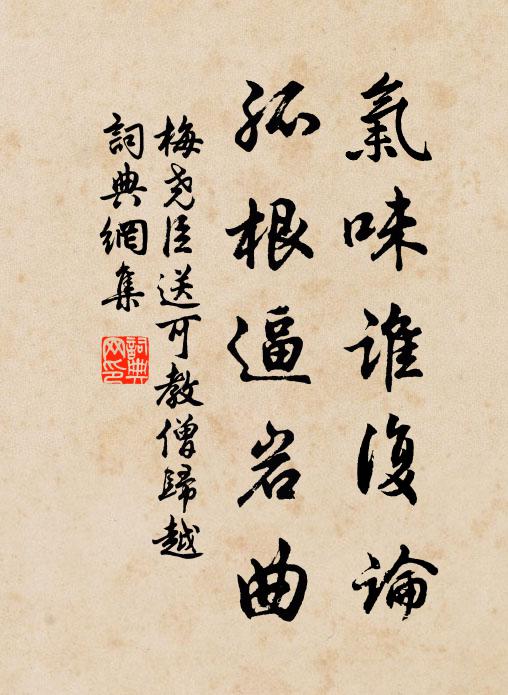 氣味誰復論
孤根逼岩曲
梅尧臣送可教僧歸越
詞典網集
詞典网印